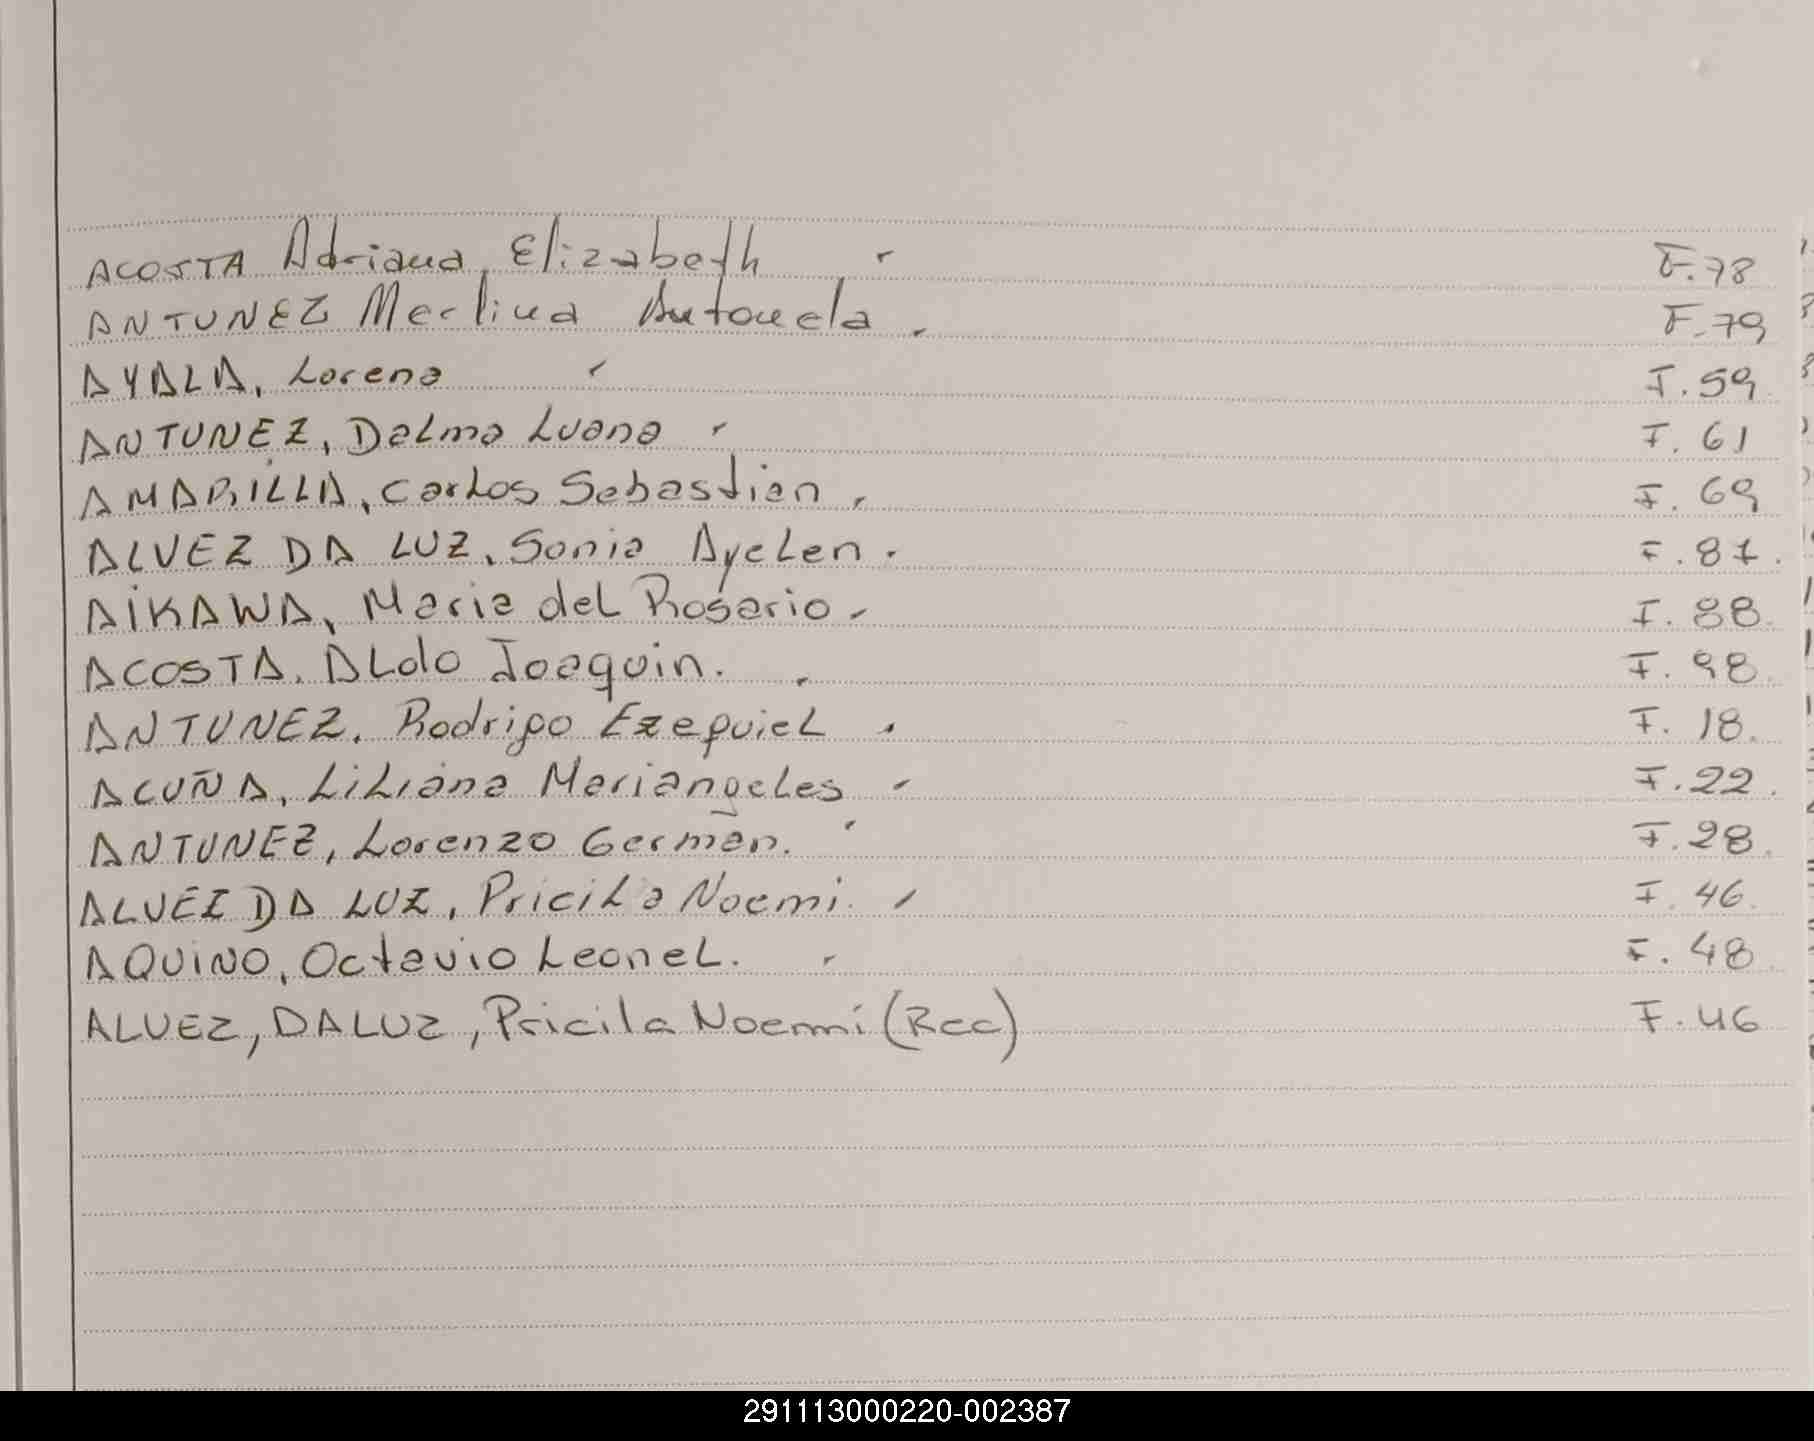 ACOSTA Adriana, Elizabeth F.78
ANTUNEZ Merlina Antonela. F.79
AYALA, Lorena F.59
ANTUNEZ, Dalma Luana F. 61
AMARILLA, Carlos Sebastian. F. 69
ALVEZ DA LUZ, Sonia Ayelen. F. 87.
AIKAWA, Maria del Rosario. F. 88.
ACOSTA, Aldo Joaquin. F. 98.
ANTUNEZ, Rodrigo Ezequiel. F. 18.
ACUÑA, Liliana Mariangeles F. 22.
ANTUNEZ, Lorenzo German. F. 28.
ALVEZ DA LUZ, Pricila Noemi. F. 46.
AQUINO, Octavio Leonel. F. 48.
ALVEZ, DALUZ, Pricila Noemi (Rec) F. 46
291113000220-002387